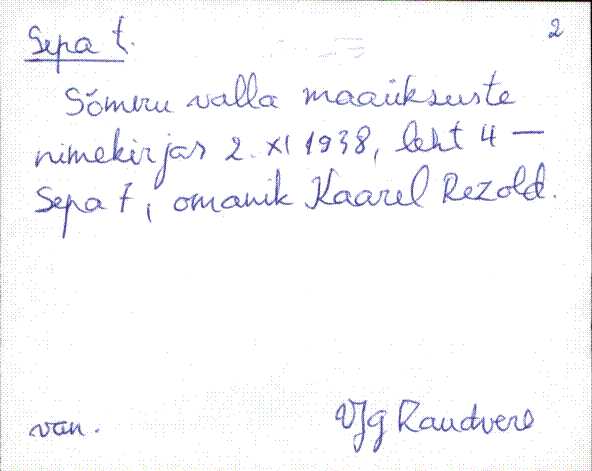 2
Sepa t.
Sõmeru valla maaüksuste
nimekirjas 2. XI 1938, leht 4 —
Sepa t, omanik Kaarel Rezold.
van.
VJg Raudvere